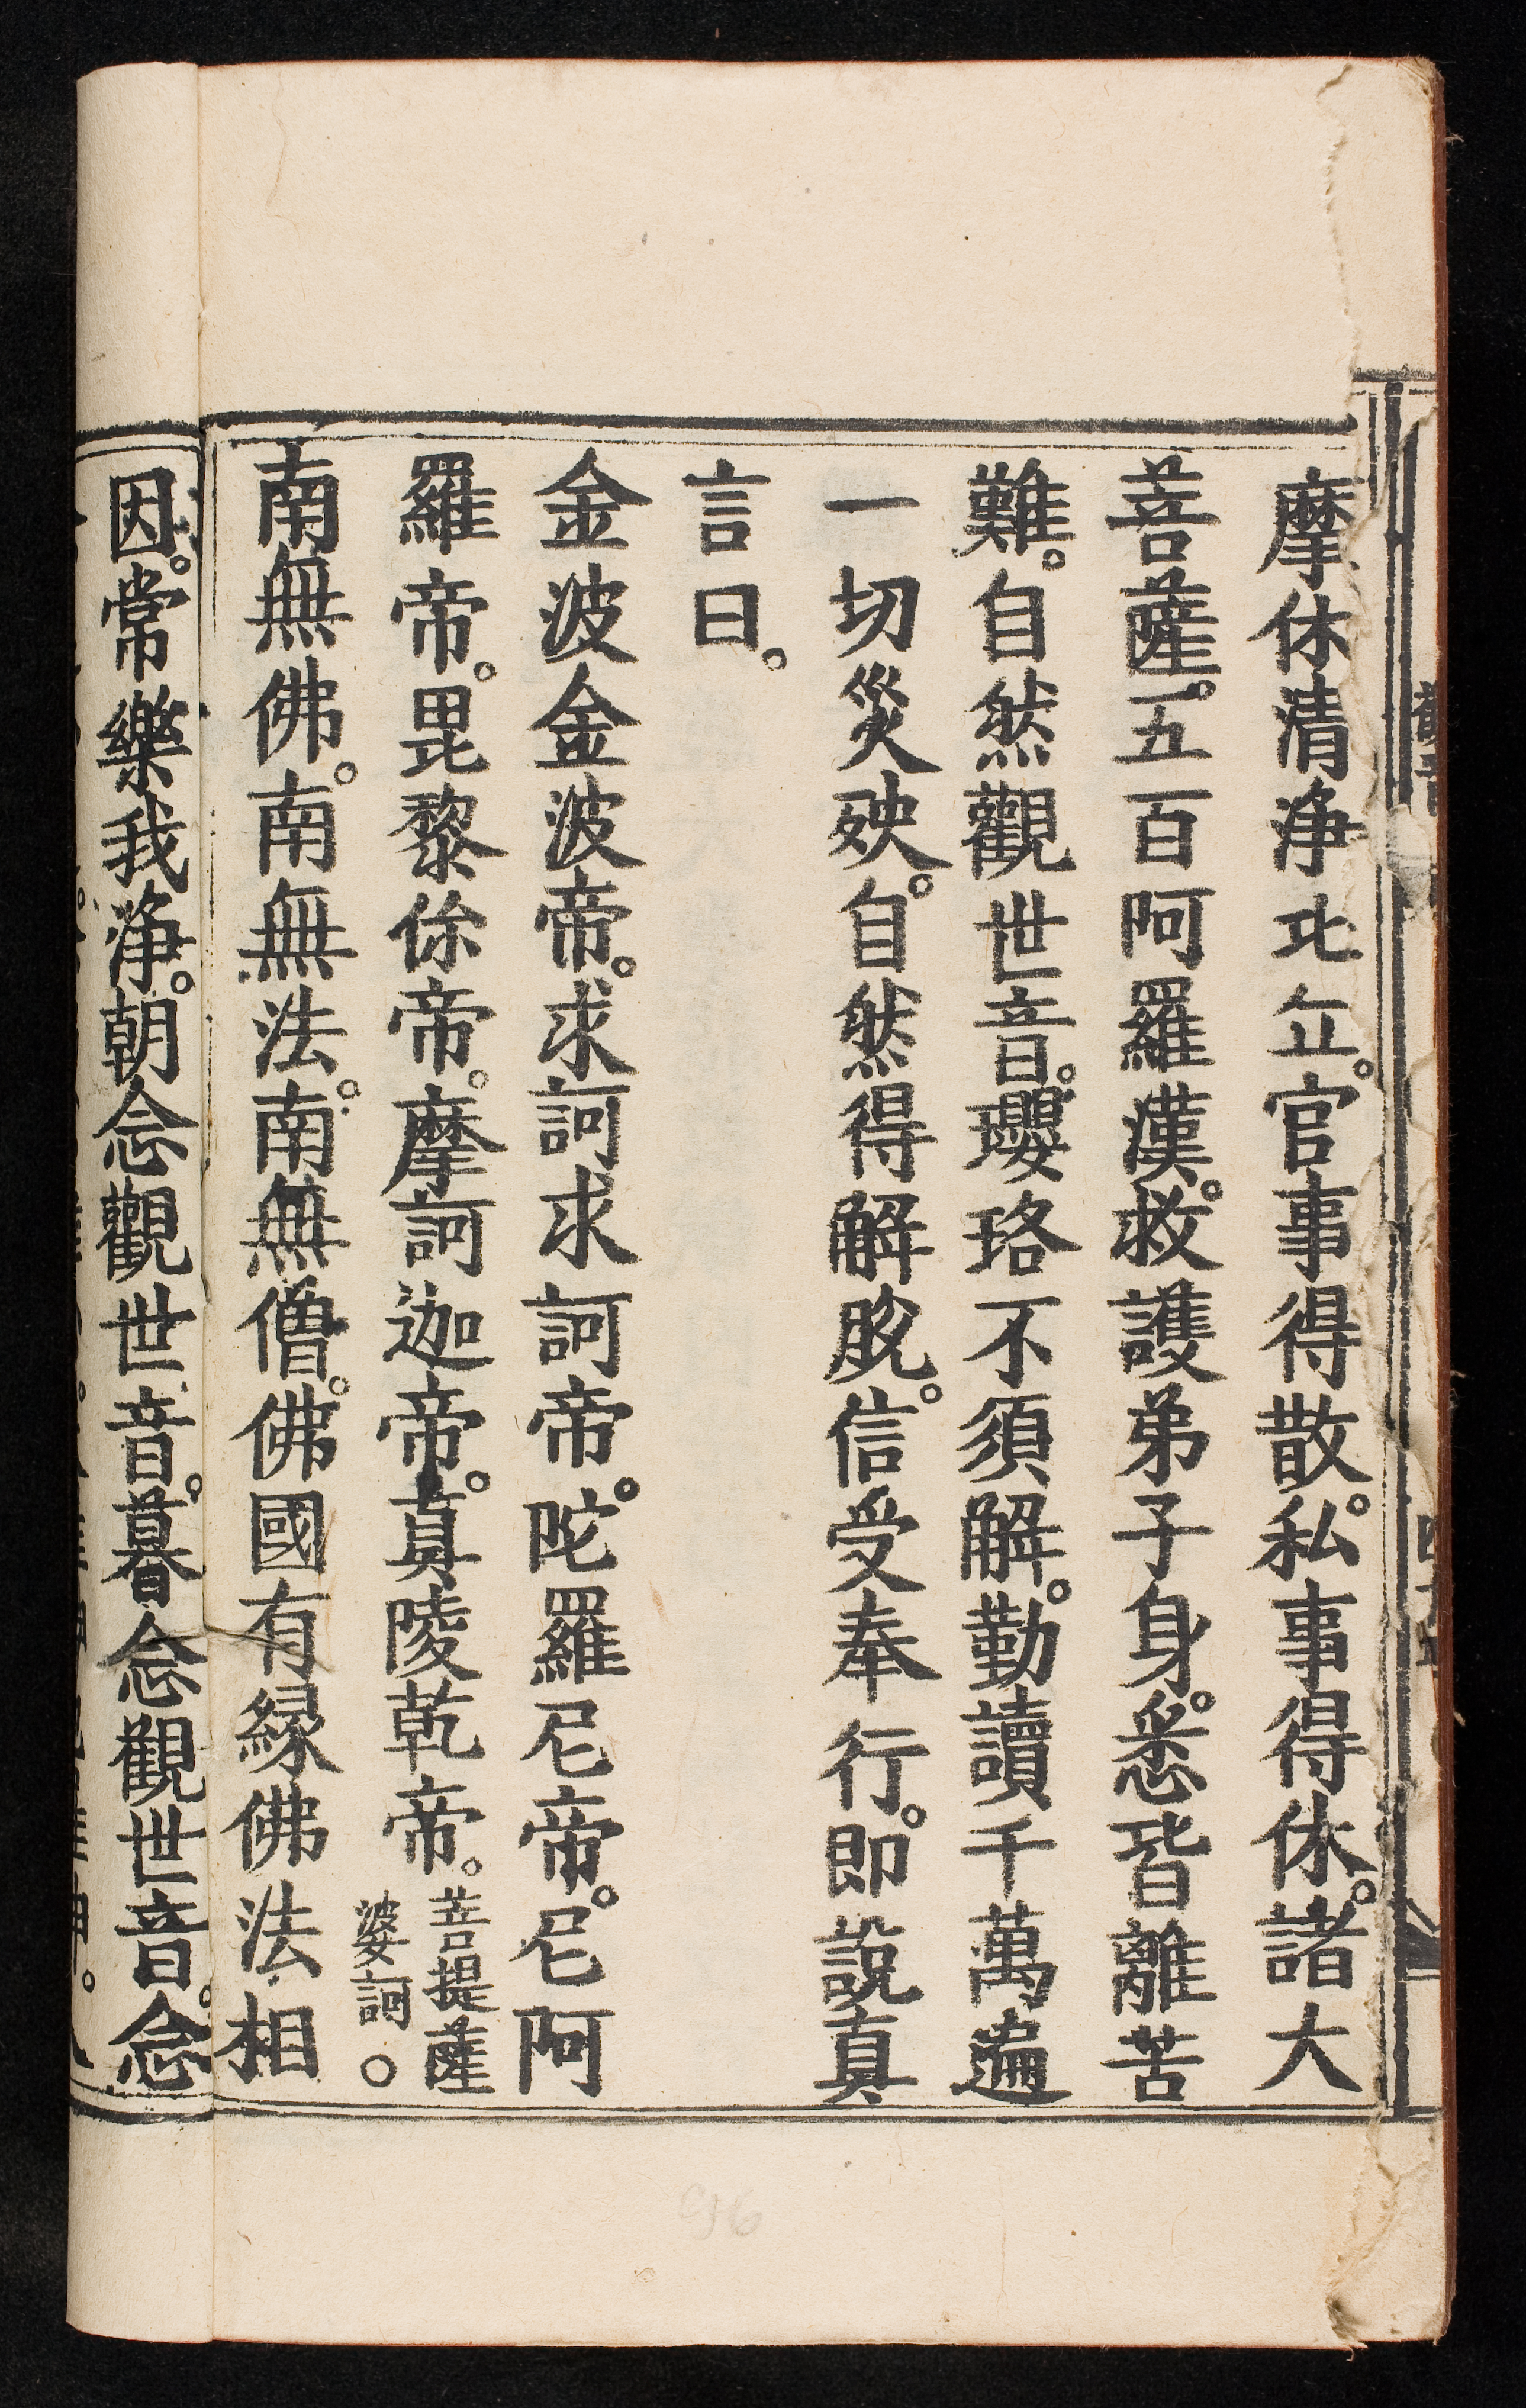 摩休清淨比丘。官事得散。私事得休。諸大
菩薩。五百阿羅漢。救護弟子身。悉皆離苦
難。自然觀世音。瓔珞不須解。勤讀千萬遍
一切災殃。自然得解脫。信受奉行。即說真
言曰。
金波金波帝。求訶求訶帝。陀羅尼帝。尼阿
羅帝。毘黎㑱帝。摩訶迦帝。真陵乾帝。菩提薩
婆訶。
南無佛。南無法。南無僧。佛國有緣佛法相
因。常樂我淨。朝念觀世音。暮念觀世音。念